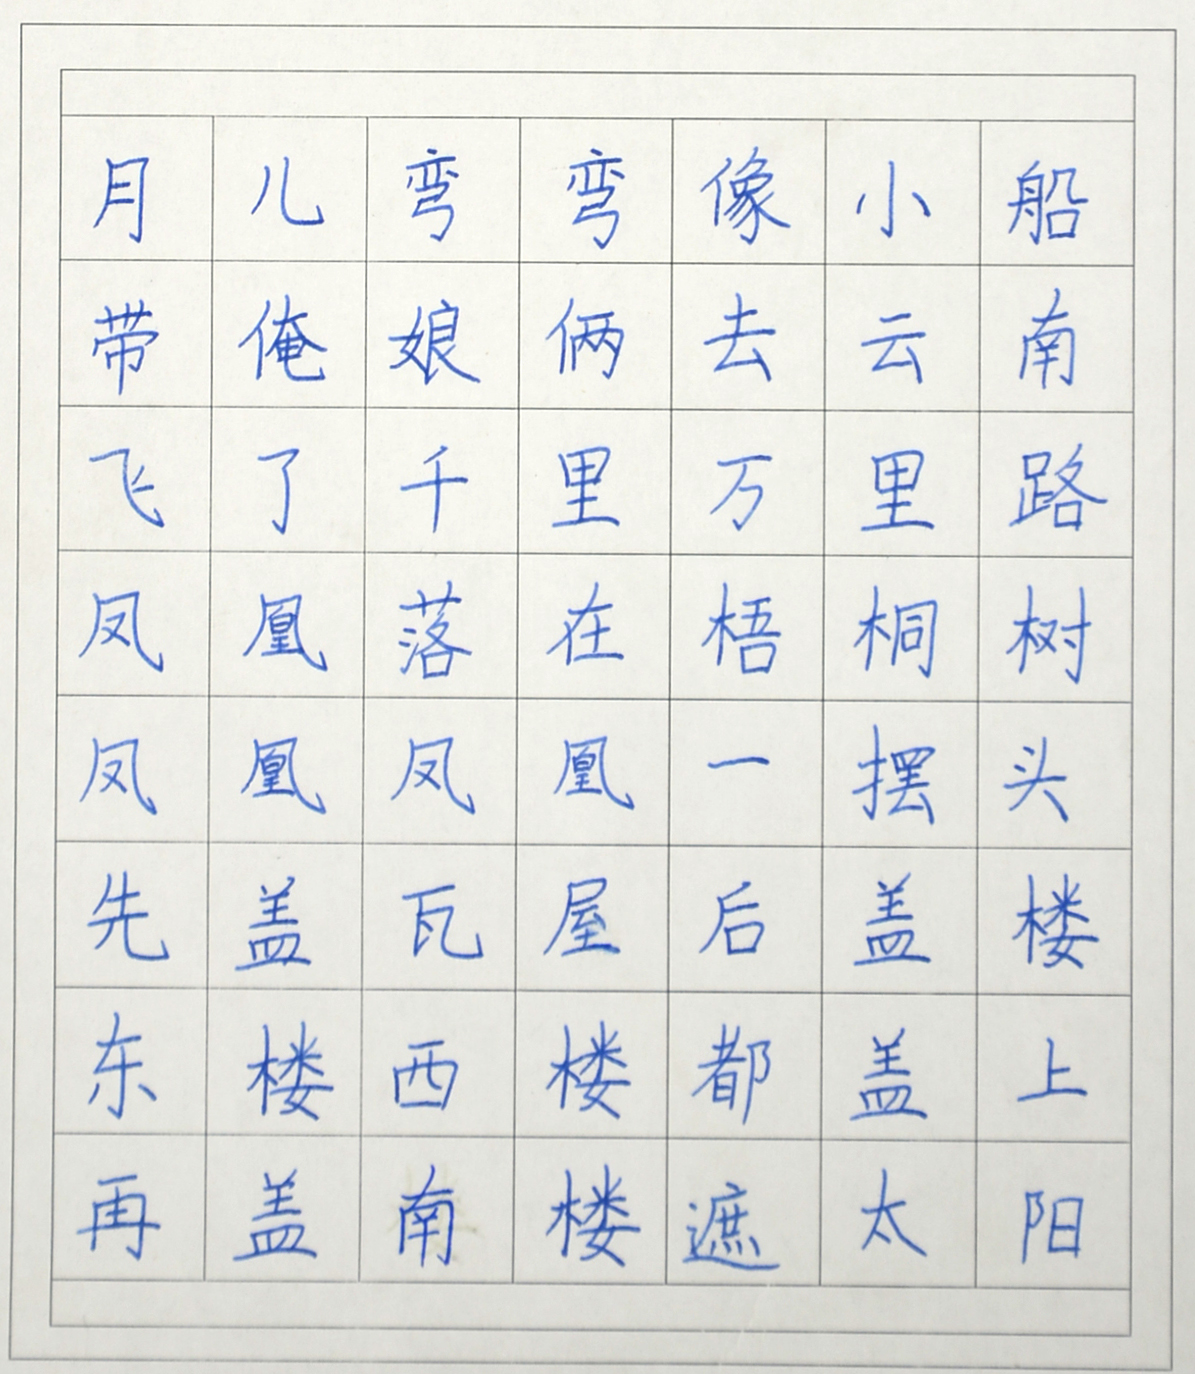 月儿弯弯像小船
带俺娘俩去云南
飞了千里万里路
凤凰落在梧桐树
凤凰凤凰一摆头
先盖瓦屋后盖楼
东楼西楼都盖上
再盖南楼遮太阳